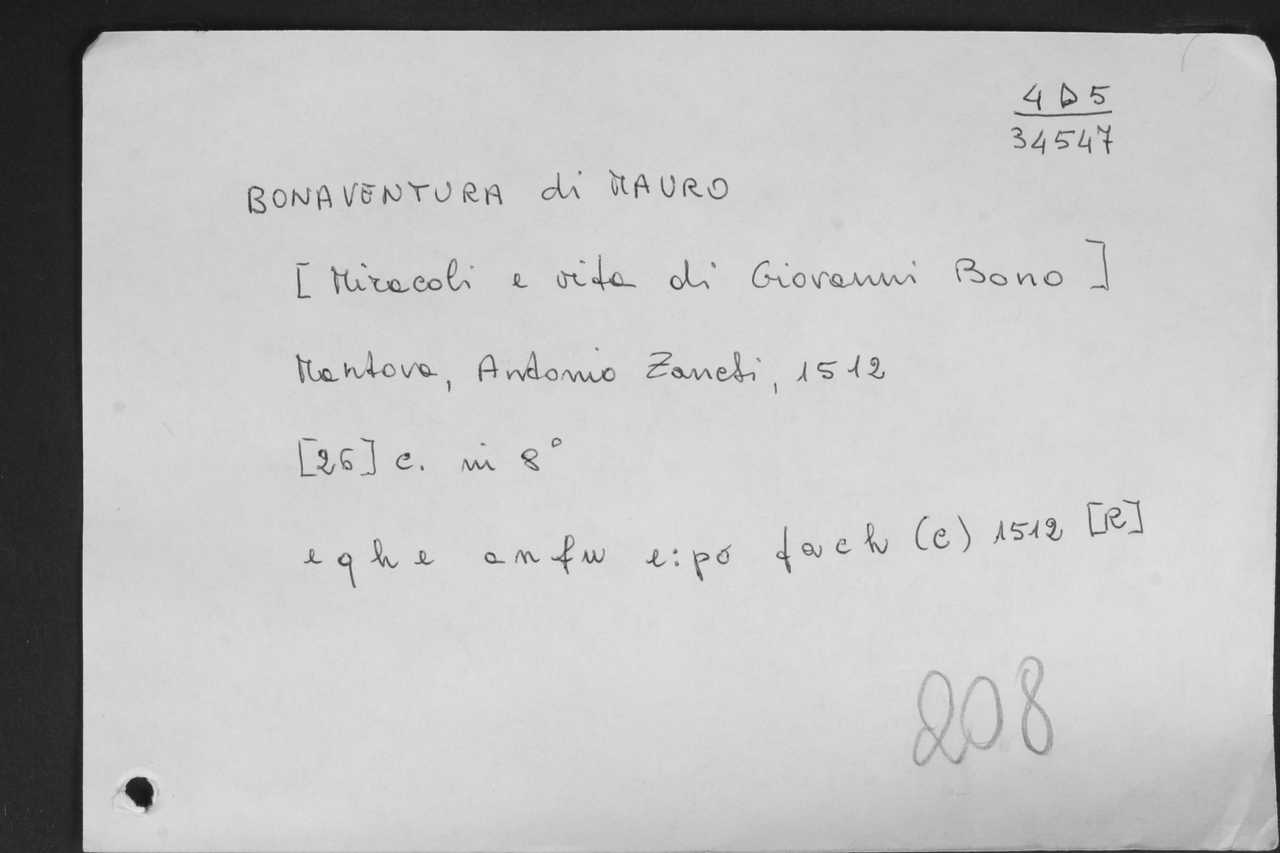 4 D 5
34547
BONAVENTURA di MAURO
[Miracoli e vita di Giovanni Bono]
Mantova, Antonio Zaneti, 1512
[26] c. in 8°
eqhe anfu e:pó fach (C) 1512 [R]
208